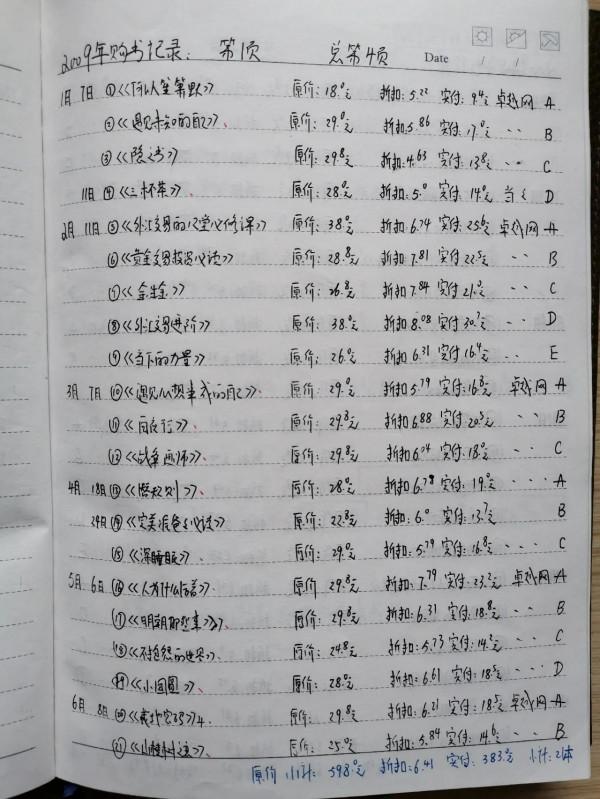 2009年购书记录: 第1页 总第4页 Date / /
1月7日 ①《下私人生笔默》 原价: 18.0元 折扣: 5.22 实付: 9.4元 卓越网 A
②《遇见未知的自己》、 原价: 29.0元 折扣 5.86 实付: 17.0元 〃 B
③《隐之书》 原价: 29.8元 折扣: 4.63 实付: 13.8元 〃 C
11日 ④《三杯茶》、 原价: 28.0元 折扣: 5.0 实付: 14.0元 当 D
2月11日 ⑤《外汇交易的10堂必修课》 原价: 38.0元 折扣: 6.74 实付: 25.6元 卓越网 A
⑥《黄金交易投资必读》 原价: 28.8元 折扣 7.81 实付: 22.5元 〃 B
⑦《金生金》 原价: 26.8元 折扣 7.84 实付: 21.0元 〃 C
⑧《外汇交易进阶》 原价: 38.0元 折扣 8.08 实付: 30.7元 〃 D
⑨《当下的力量》 原价: 26.0元 折扣 6.31 实付: 16.4元 〃 E
3月7日 ⑩《遇见心想事成的自己》、 原价: 29.0元 折扣 5.79 实付: 16.8元 卓越网 A
⑪《同在行》、 原价: 29.8元 折扣 6.88 实付: 20.5元 〃 B
⑫《战争画师》、 原价: 29.8元 折扣 6.04 实付: 18.0元 〃 C
4月18日 ⑬《潜规则》、 原价: 28.0元 折扣: 6.78 实付: 19.0元 〃 A
24日 ⑭《完美很爸爸必读》 原价: 22.8元 折扣: 6.0 实付: 13.7元 B
⑮《深睡眠》、 原价: 29.0元 折扣: 5.79 实付: 16.8元 〃 C
5月6日 ⑯《人为什么活着》、 原价: 29.8元 折扣: 7.79 实付: 23.2元 卓越网 A
⑰《明朝那些事》、 原价: 29.8元 折扣: 6.31 实付: 18.8元 〃 B
⑱《不抱怨的世界》、 原价: 24.8元 折扣: 5.73 实付: 14.2元 〃 C
⑲《小团圆》、 原价: 28.0元 折扣: 6.61 实付: 18.5元 〃 D
6月8日 ⑳《藏地密码》4、 原价: 29.8元 折扣: 6.21 实付: 18.5元 卓越网 A
㉑《山楂树之恋》、 原价: 25.0元 折扣: 5.84 实付: 14.6元 〃 B
原价小计: 598.0元 折扣: 6.41 实付: 383.0元 小计: 21本